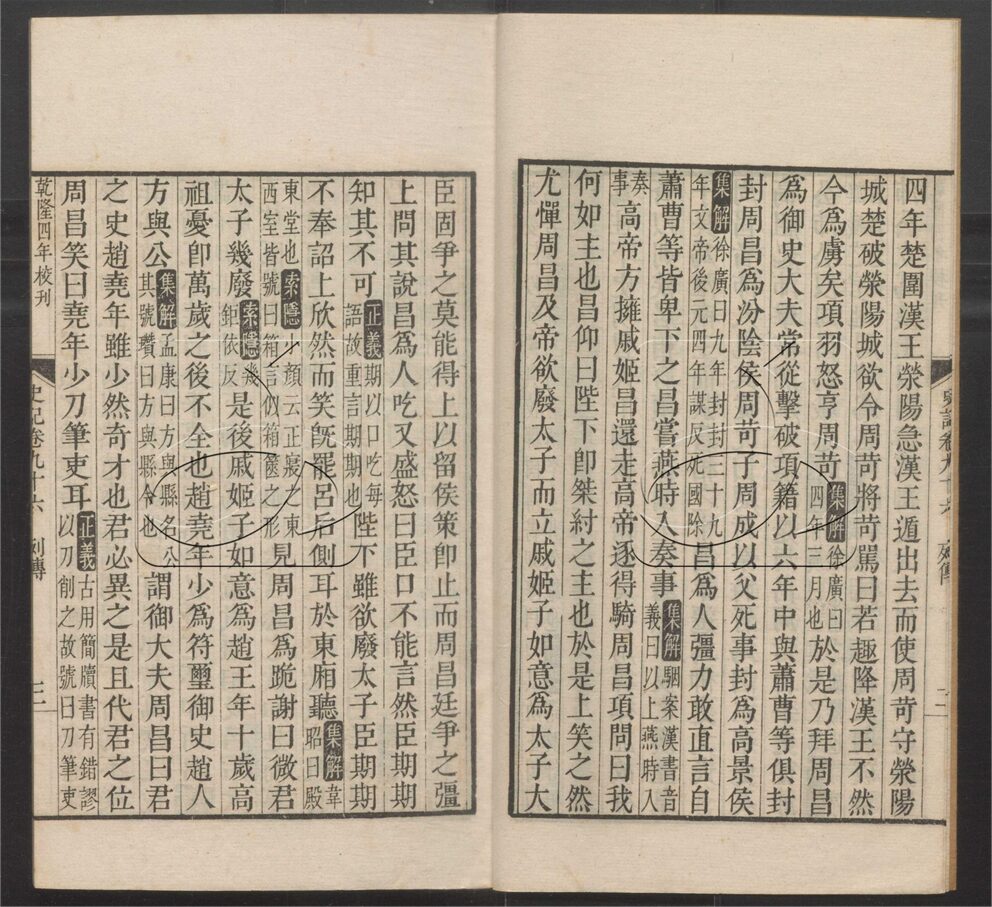 四年楚圍漢王滎陽急漢王遁出去而使周苛守滎陽
城楚破滎陽城欲令周苛將苛罵曰若趣降漢王不然
今為虜矣項羽怒亨周苛集解徐廣曰四年三月也於是乃拜周昌
為御史大夫常從擊破項籍以六年中與蕭曹等俱封
封周昌為汾陰侯周苛子周成以父死事封為高景侯
集解徐廣曰九年封封三十九年文帝後元四年謀反死國除昌為人彊力敢直言自
蕭曹等皆卑下之昌嘗燕時入奏事集解駰案漢書音義曰以上燕時入
奏事高帝方擁戚姬昌還走高帝逐得騎周昌項問曰我
何如主也昌仰曰陛下即桀紂之主也於是上笑之然
尤憚周昌及帝欲廢太子而立戚姬子如意為太子大
臣固爭之莫能得上以留侯策即止而周昌廷爭之彊
上問其說昌為人吃又盛怒曰臣口不能言然臣期期
知其不可正義期以口吃每語故重言期期也陛下雖欲廢太子臣期期
不奉詔上欣然而笑旣罷呂后側耳於東廂聽集解韋昭曰殿
東堂也索隱小顏云正寢之東西室皆號曰箱言似箱篋之形見周昌為跪謝曰微君
太子幾廢索隱幾鉅依反是後戚姬子如意為趙王年十歲高
祖憂卽萬歲之後不全也趙堯年少為符璽御史趙人
方與公集解孟康曰方與縣名公其號瓚曰方與縣令也謂御史大夫周昌曰君
之史趙堯年雖少然奇才也君必異之是且代君之位
周昌笑曰堯年少刀筆吏耳正義古用簡牘書有錯謬以刀削之故號曰刀筆吏
乾隆四年校刊
史記卷九十六
列傳
三